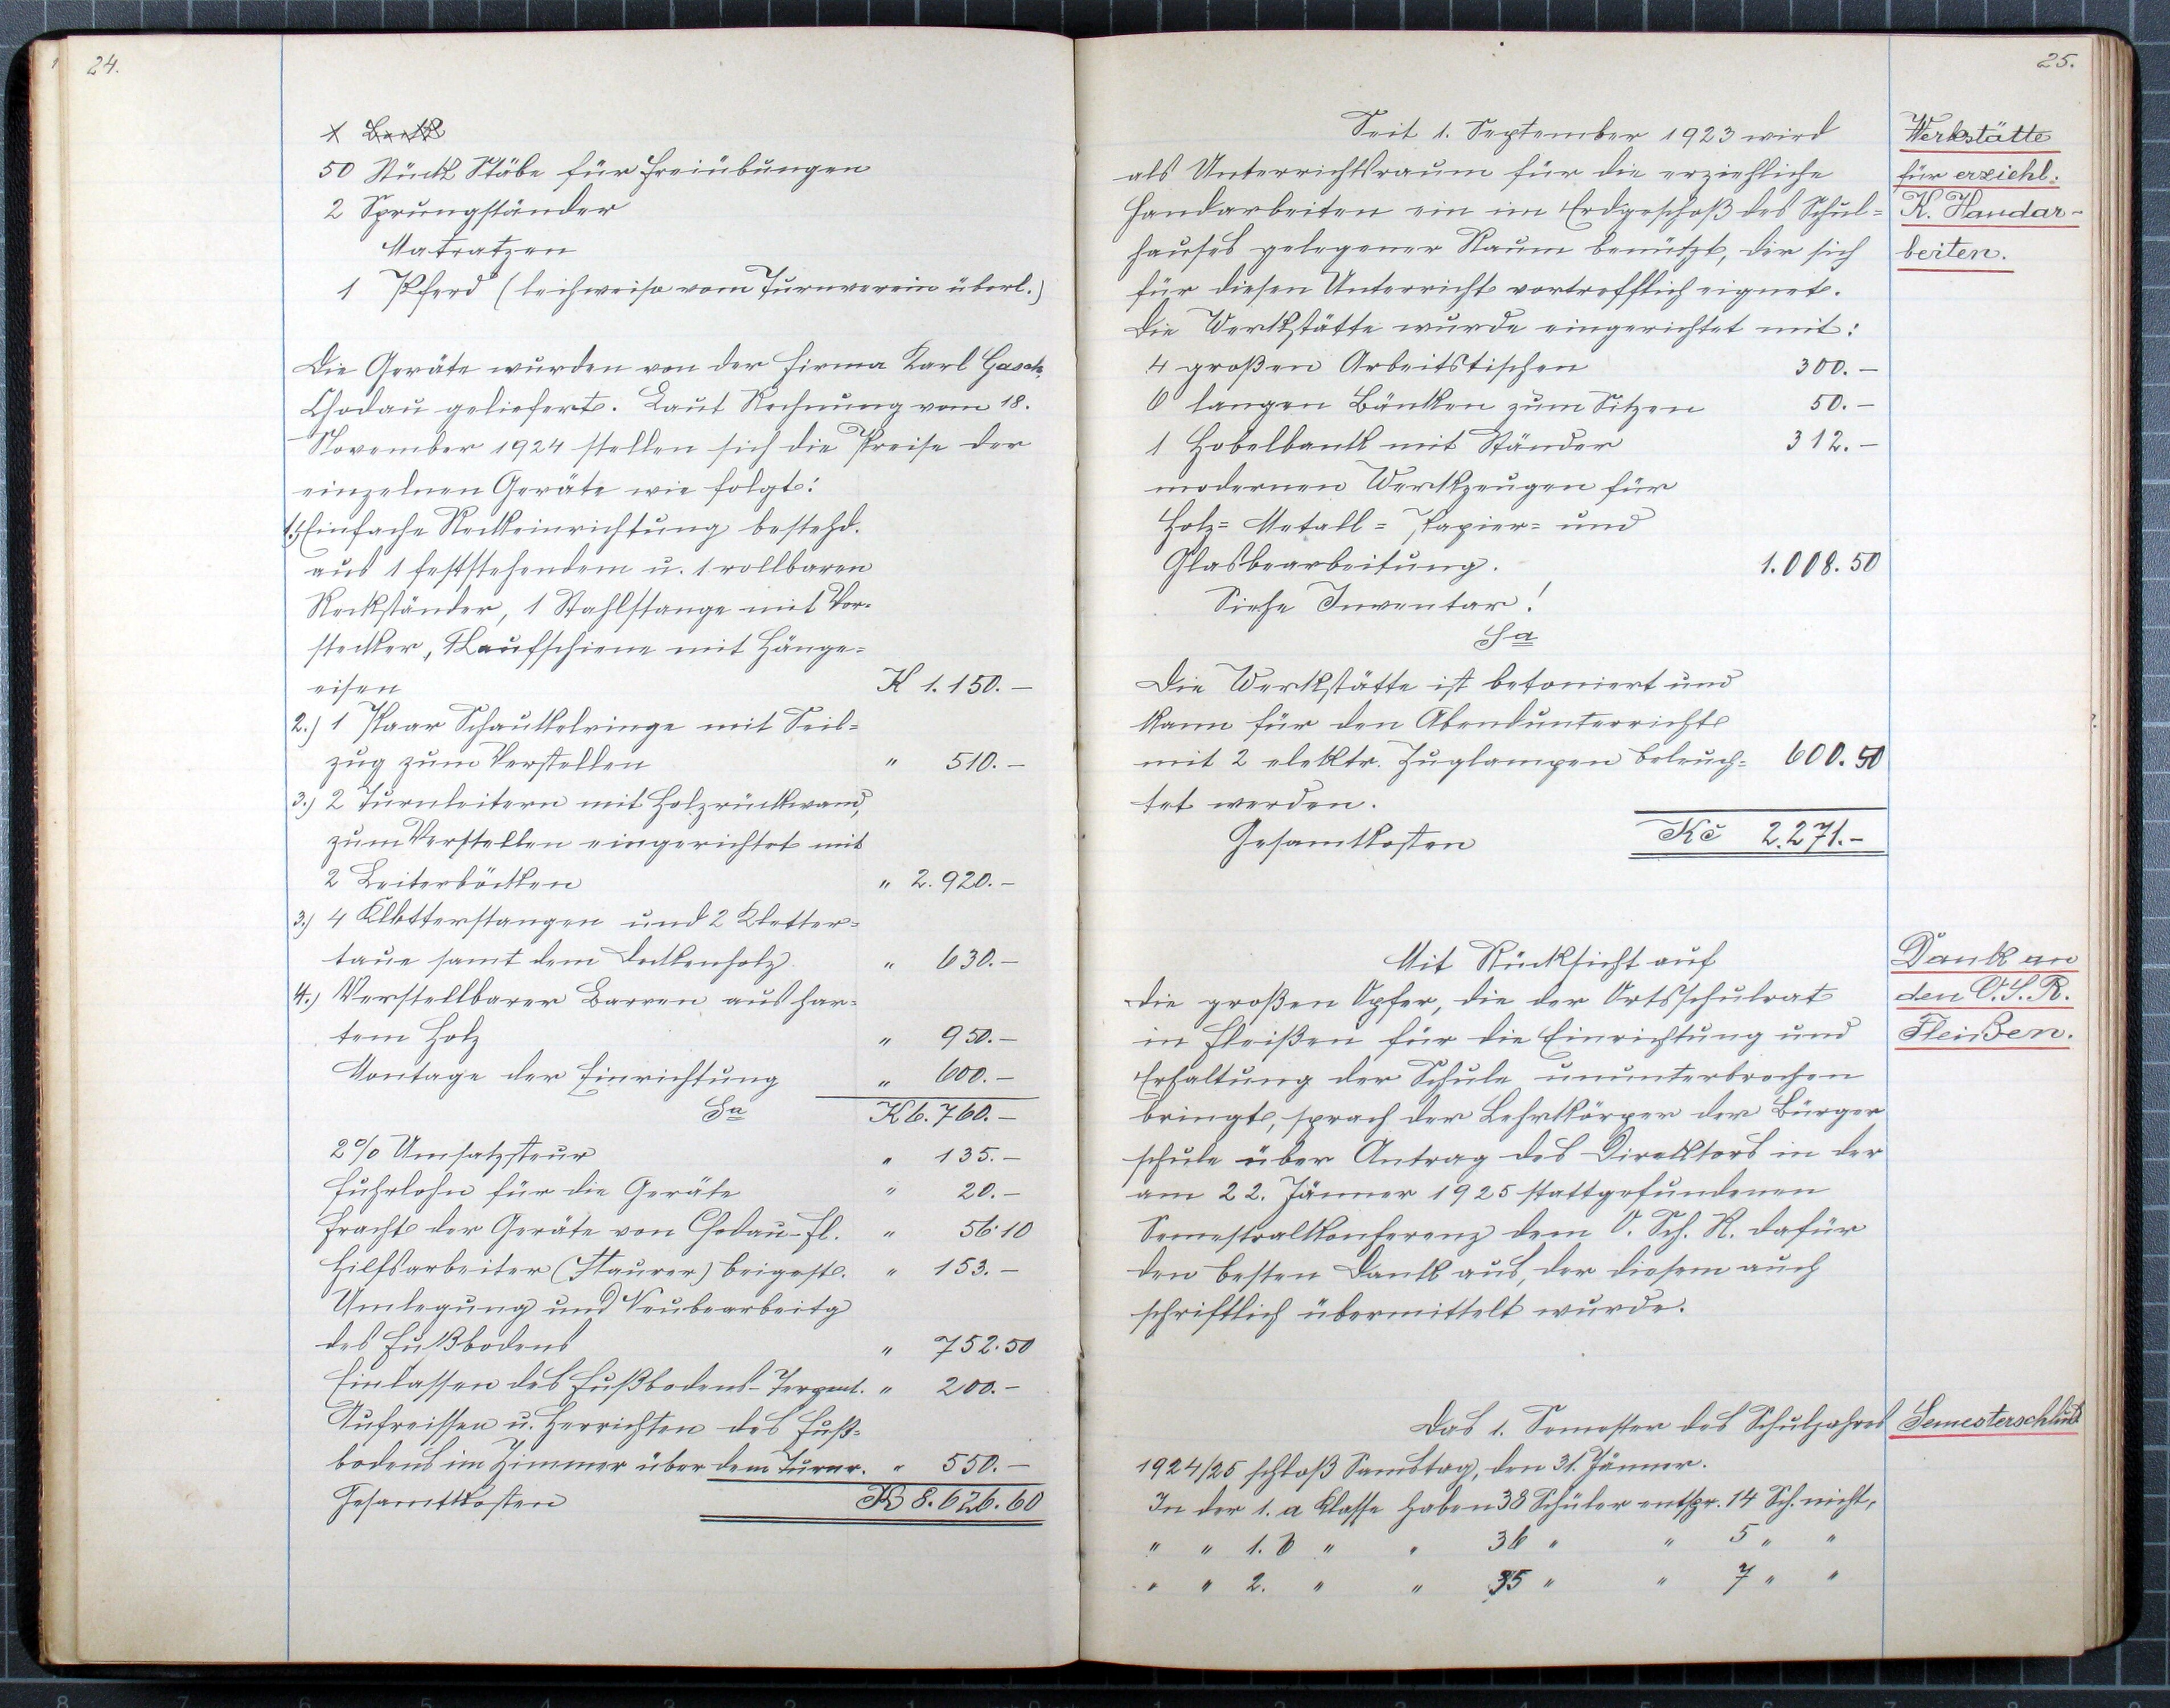 24.
50 Stück Stäbe für Freiübungen
2 Sprungständer
Matratzen
1 Pferd (leihweise vom Turnverein überl.)
Die Geräte wurden von der Firma Karl Gasch,
Chodau geliefert. Laut Rechnung vom 18.
November 1924 stellen sich die Preise der
einzelnen Geräte wie folgt:
1.) Einfache Reckeinrichtung bestehd.
aus 1 feststehendem u. 1 rollbaren
Reckständer, 1 Stahlstange mit Vor-
stecker, 1 Laufschiene mit Hänge=
eisen K 1.150.-
2.) 1 Paar Schaukelringe mit Seil=
zug zum Verstellen " 510.-
3.) 2 Turnleitern mit Holzrückwand,
zum Verstellen eingerichtet mit
2 Leiterböcken " 2.920.-
3.) 4 Kletterstangen und 2 Kletter=
taue samt dem Deckenholz " 630.-
4.) Verstellbarer Barren aus har=
tem Holz " 950.-
Montage der Einrichtung " 600.-
Sa K 6.760.-
2% Umsatzsteur " 135.-
Fuhrlohn für die Geräte " 20.-
Fracht der Geräte von Chodau-Fl. " 56.10
Hilfsarbeiter (Maurer) beigest. " 153.-
Umlegung und Neubearbeitg
des Fußbodens " 752.50
Einlassen des Fußbodens-Terpent. " 200.-
Aufreissen u. Herrichten des Fuß=
bodens im Zimmer über dem Turnr. " 550.-
Gesamtkosten K 8.626.60
25.
Seit 1. September 1923 wird
als Unterrichtsraum für die erziehliche
Handarbeiten ein im Erdgeschoß des Schul=
hauses gelegener Raum benützt, der sich
für diesen Unterricht vortrefflich eignet.
Die Werkstätte wurde eingerichtet mit:
4 großen Arbeitstischen 300.-
6 langen Bänken zum Sitzen 50.-
1 Hobelbank mit Ständer 312.-
modernen Werkzeugen für
Holz= Metall= Papier= und
Glasbearbeitung. 1.008.50
Siehe Inventar!
Sa
Die Werkstätte ist betoniert und
kann für den Abendunterricht
mit 2 elektr. Zuglampen beleuch= 600.50
tet werden.
Gesamtkosten Kč 2.271.-
Mit Rücksicht auf
die großen Opfer, die der Ortsschulrat
in Fleißen für die Einrichtung und
Erhaltung der Schule ununterbrochen
bringt, sprach der Lehrkörper der Bürger
schule über Antrag des Direktors in der
am 22. Jänner 1925 stattgefundenen
Semestralkonferenz dem O. Sch. R. dafür
den besten Dank aus, der diesem auch
schriftlich übermittelt wurde.
Das 1. Semester des Schuljahres
1924/25 schloß Samstag, den 31. Jänner.
In der 1. a Klasse haben 38 Schüler entspr. 14 Sch. nicht,
" " 1. b " " 36 " " 5 " "
" " 2. " " 35 " " 7 " "
Werkstätte
für erziehl.
K. Handar-
beiten.
Dank an
den O.S.R.
Fleißen.
Semesterschluß